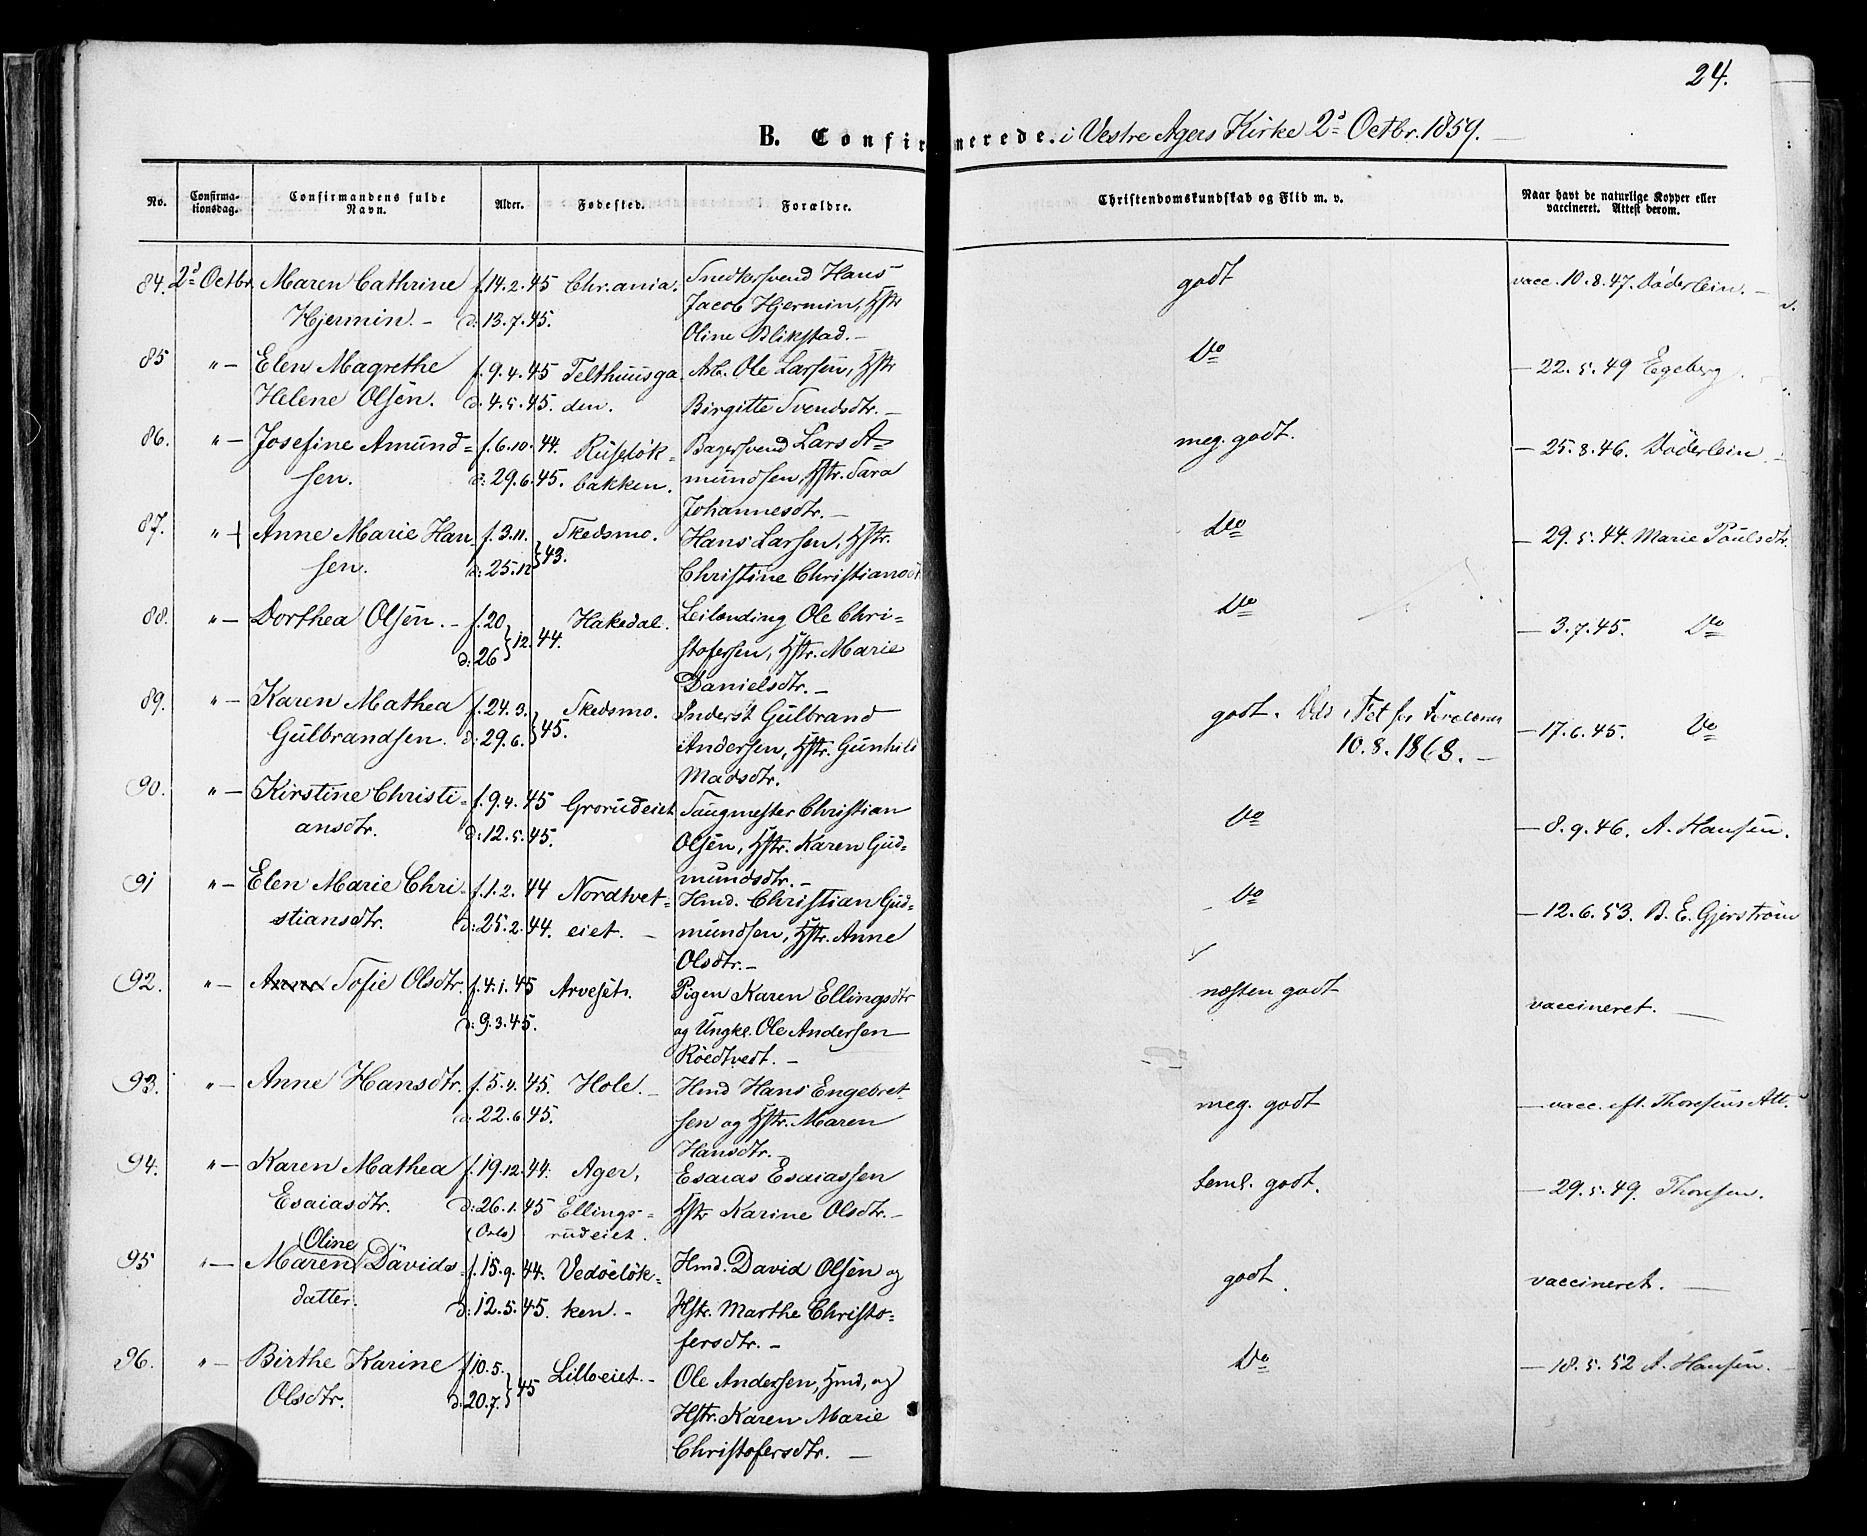 24.
B. Confirmerede. i Vestre Agers Kirke 2d Octbr. 1859.
No. Confirmationsdag. Confirmandens fulde Navn. Alder. Fødested. Forældre. Christendomskundskab og Flid m. v. Naar havt de naturlige Kopper eller vaccineret. Attest derom.
84. 2d Octbr. Maren Cathrine f. 14.2.45 Chr.ania. Snedkersvend Hans godt vacc. 10.8.47. Döderlein. –
Hjermin. – d: 13.7.45. Jacob Hjermin, Hstr
Oline Blikstad. –
85 "– Elen Magrethe f. 9.4.45 Telthuusga Arb. Ole Larsen, Hstr Do – 22.5.49 Egeberg.
Helene Olsen. d. 4.5.45. den. Birgitte Svendsdtr. –
86. "– Josefine Amund= f. 6.10.44. Ruseløk- Bagersvend Lars A= meg. godt. – 25.8.46. Döderlein. –
sen. d: 29.6.45. bakken. mundsen, Hstr. Sara
Johannesdtr. –
87. "+ Anne Marie Han= f. 3.11. Skedsmo. Hans Larsen, Hstr. Do – 29.5.44. Marie Paulsdtr.
sen. d: 25.12 } 43. Christine Christiansd
88. "– Dorthea Olsen. – f. 20 Hakedal. Leilænding Ole Chri- Do – 3.7.45. Do
d: 26 } 12. 44. stofersen, Hstr. Marie
Danielsdtr. –
89. "– Karen Mathea f. 24.3. Skedsmo. Inderst Gulbrand godt. Tet for 10.8.1868. – – 17.6.45. Do
Gulbrandsen. d: 29.6. } 45. Andersen, Hstr. Gunhild
Madsdtr.
90. "– Kirstine Christi- f. 9.4.45 Grorudeiet Saugmester Christian Do – 8.9.46. A. Hansen.
ansdtr. d: 12.5.45. Olsen, Hstr. Karen Gud=
mundsdtr. –
91 "– Elen Marie Chri- f. 1.2.44 Nordtvet= Hmd. Christian Gud= Do – 12.6.53. B. E. Gjerstrøm
stiansdtr. d: 25.2.44. eiet. – mundsen, Hstr. Anne
Olsdtr. –
92. "– Anne Sofie Olsdtr. f. 4.1.45 Pigen Karen Ellingsdtr næsten godt vaccineret. –
d: 9.3.45. og Ungk. Ole Andersen
Röedtvedt. –
93. "– Anne Hansdtr. f. 5.4.45. Hole. – Hmd Hans Engebret meg. godt – vacc. eft. Thoresens Att.
d: 22.6.45. sen og Hstr. Maren
Hansdtr. –
94. "– Karen Mathea f. 19.12.44. Ager, Esaias Esaiassen teml. godt. – 29.5.49. Thoresen.
Esaiasdtr. d: 26.1.45 Ellings= Hstr Karine Olsdtr. –
(Oslo) rudeiet.
Oline
95 "– Maren Davids f. 15.9.44. Vedöeløk= Hmd. David Olsen og godt. vaccineret. –
datter. d: 12.5.45. ken. – Hstr. Marthe Christo-
fersdtr. –
96. "– Birthe Karine f. 10.5. Lilloeiet. – Ole Andersen, Hmd, og Do – 18.5.52 A. Hansen. –
Olsdtr. d: 20.7. } 45 Hstr. Karen Marie
Christofersdtr. –